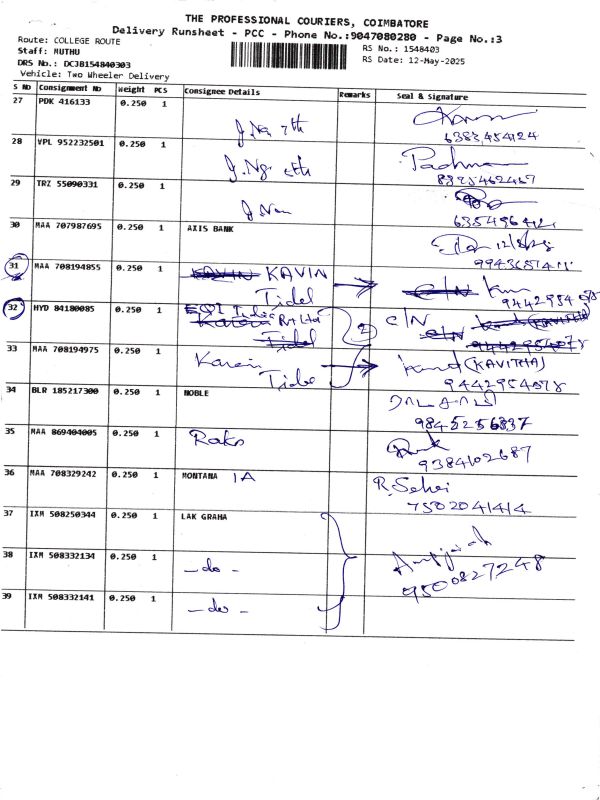 THE PROFESSIONAL COURIERS, COIMBATORE
Delivery Runsheet - PCC - Phone No.:9047080280 - Page No.:3
Route: COLLEGE ROUTE
RS No.: 1548403
Staff: MUTHU
RS Date: 12-May-2025
DRS No.: DCJB154840303
Vehicle: Two Wheeler Delivery
S No Consignment No Weight PCS Consignee Details Remarks Seal & Signature
27 PDK 416133 0.250 1
6383454124
28 VPL 952232501 0.250 1
Padhma
29 TRZ 55090331 0.250 1
30 MAA 707987695 0.250 1 AXIS BANK
31 MAA 708194855 0.250 1 KAVIN
Tidel
32 HYD 84180085 0.250 1
Pvt Ltd
Tidel
C/N
33 MAA 708194975 0.250 1 (KAVITHA)
9442954078
34 BLR 185217300 0.250 1 NOBLE
9845256837
35 MAA 869404005 0.250 1
9384102687
36 MAA 708329242 0.250 1 MONTANA 1A
7502041414
37 IXM 508250344 0.250 1 LAK GRAHA
38 IXM 508332134 0.250 1 -do-
9500827248
39 IXM 508332141 0.250 1 -do-